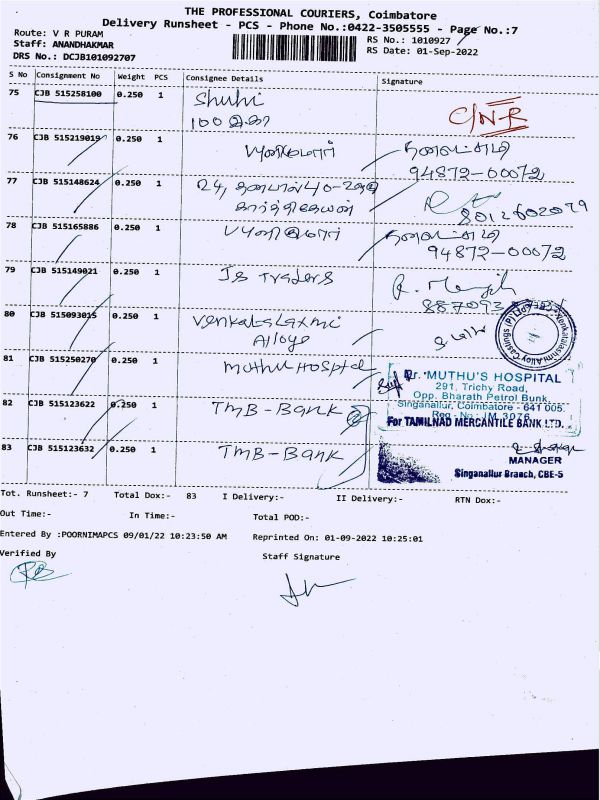 THE PROFESSIONAL COURIERS, Coimbatore
Delivery Runsheet - PCS - Phone No.:0422-3505555 - Page No.:7
Route: V R PURAM
RS No.: 1010927
Staff: ANANDHAKMAR
RS Date: 01-Sep-2022
DRS No.: DCJB101092707
S No Consignment No Weight PCS Consignee Details Signature
75 CJB 515258100 0.250 1
76 CJB 515219019 0.250 1
94872-00072
77 CJB 515148624 0.250 1 24,
8012602079
78 CJB 515165886 0.250 1
94872-00072
79 CJB 515149021 0.250 1 JS Traders
80 CJB 515093015 0.250 1 Venkatalaxmi
Alloys
81 CJB 515250270 0.250 1 Muthu Hosptel
Dr. MUTHU'S HOSPITAL
291, Trichy Road,
Opp. Bharath Petrol Bunk,
Singanallur, Coimbatore - 641 005.
Reg - No : JM 3076
82 CJB 515123622 0.250 1 TMB-Bank
For TAMILNAD MERCANTILE BANK LTD.
83 CJB 515123632 0.250 1 TMB-Bank
MANAGER
Singanallur Branch, CBE-5
Tot. Runsheet:- 7 Total Dox:- 83 I Delivery:- II Delivery:- RTN Dox:-
Out Time:- In Time:- Total POD:-
Entered By :POORNIMAPCS 09/01/22 10:23:50 AM Reprinted On: 01-09-2022 10:25:01
Verified By Staff Signature